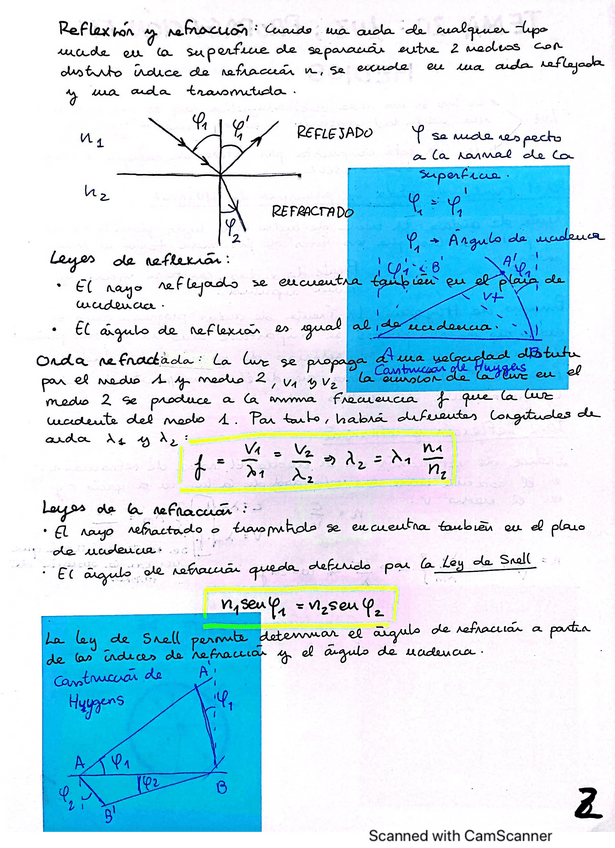 Reflexión y refracción: Cuando una onda de cualquier tipo
incide en la superficie de separación entre 2 medios con
distinto índice de refracción n, se escinde en una onda reflejada
y una onda transmitida.
n1
n2
φ1 φ1'
REFLEJADO
REFRACTADO
φ2
φ se mide respecto
a la normal de la
superficie.
φ1 = φ1'
φ1 → Ángulo de incidencia
Leyes de reflexión:
• El rayo reflejado se encuentra también en el plano de
incidencia.
• El ángulo de reflexión es igual al de incidencia.
φ1' B' A' φ1
A B
Construcción de Huygens
Onda refractada: La luz se propaga a una velocidad distinta
por el medio 1 y medio 2, v1 y v2. La emisión de la luz en el
medio 2 se produce a la misma frecuencia f que la luz
incidente del medio 1. Por tanto, habrá diferentes longitudes de
onda λ1 y λ2:
f = v1/λ1 = v2/λ2 ⇒ λ2 = λ1 n1/n2
Leyes de la refracción:
• El rayo refractado o transmitido se encuentra también en el plano
de incidencia.
• El ángulo de refracción queda definido por la Ley de Snell
n1 sen φ1 = n2 sen φ2
La ley de Snell permite determinar el ángulo de refracción a partir
de los índices de refracción y el ángulo de incidencia.
Construcción de
Huygens
A'
φ1
A φ1
φ2 φ2
B
B'
2
Scanned with CamScanner